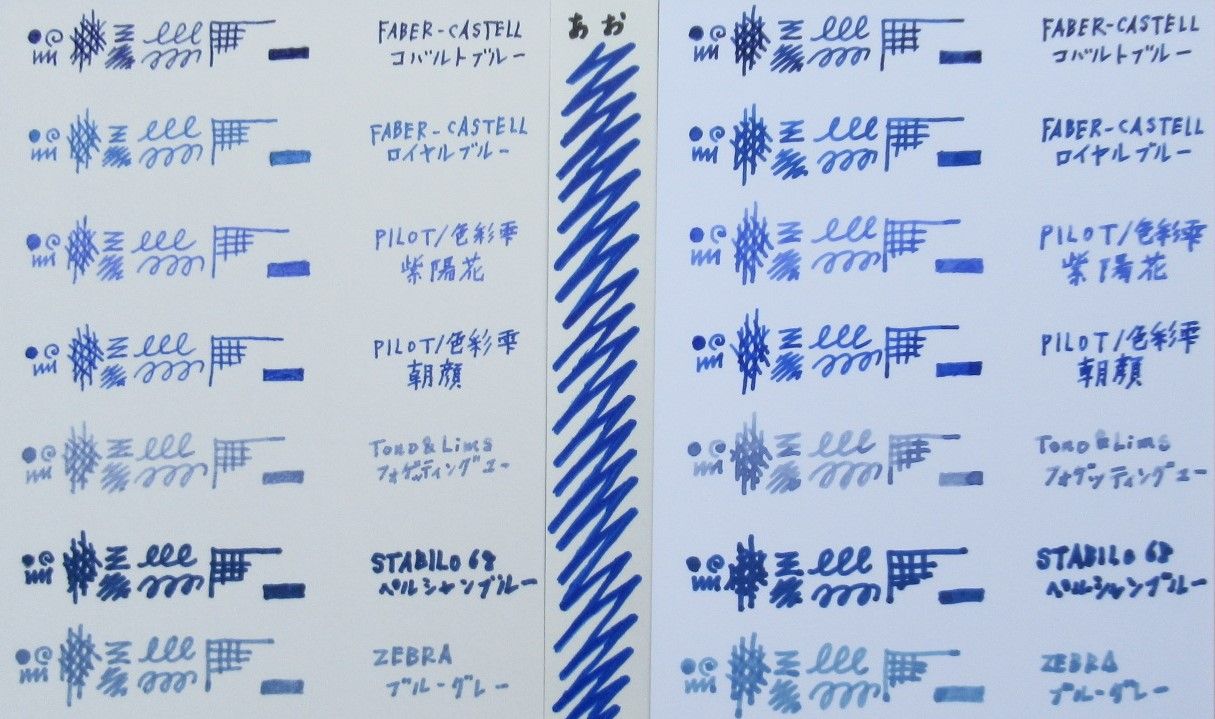 FABER-CASTELL
コバルトブルー
FABER-CASTELL
ロイヤルブルー
PILOT/色彩雫
紫陽花
PILOT/色彩雫
朝顔
Tono&Lims
フォゲッティングユー
STABILO 68
ペルシャンブルー
ZEBRA
ブルーグレー
あお
FABER-CASTELL
コバルトブルー
FABER-CASTELL
ロイヤルブルー
PILOT/色彩雫
紫陽花
PILOT/色彩雫
朝顔
Tono&Lims
フォゲッティングユー
STABILO 68
ペルシャンブルー
ZEBRA
ブルーグレー